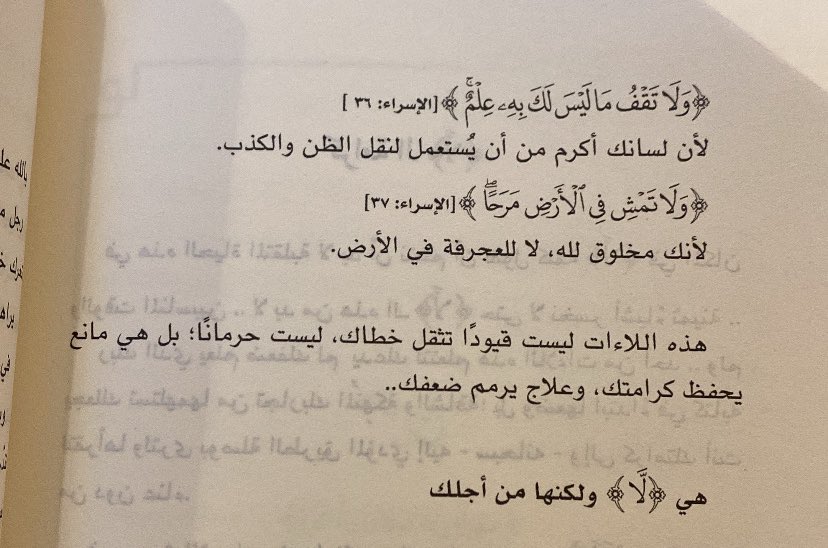 ﴿وَلَا تَقْفُ مَا لَيْسَ لَكَ بِهِۦ عِلْمٌۚ﴾ [الإسراء: ٣٦]
لأن لسانك أكرم من أن يُستعمل لنقل الظن والكذب.
﴿وَلَا تَمْشِ فِي ٱلْأَرْضِ مَرَحًاۖ﴾ [الإسراء: ٣٧]
لأنك مخلوق لله، لا للعجرفة في الأرض.
هذه اللاءات ليست قيودًا تثقل خطاك، ليست حرمانًا؛ بل هي مانع
يحفظ كرامتك، وعلاج يرمم ضعفك..
هي ﴿لَّا﴾ ولكنها من أجلك